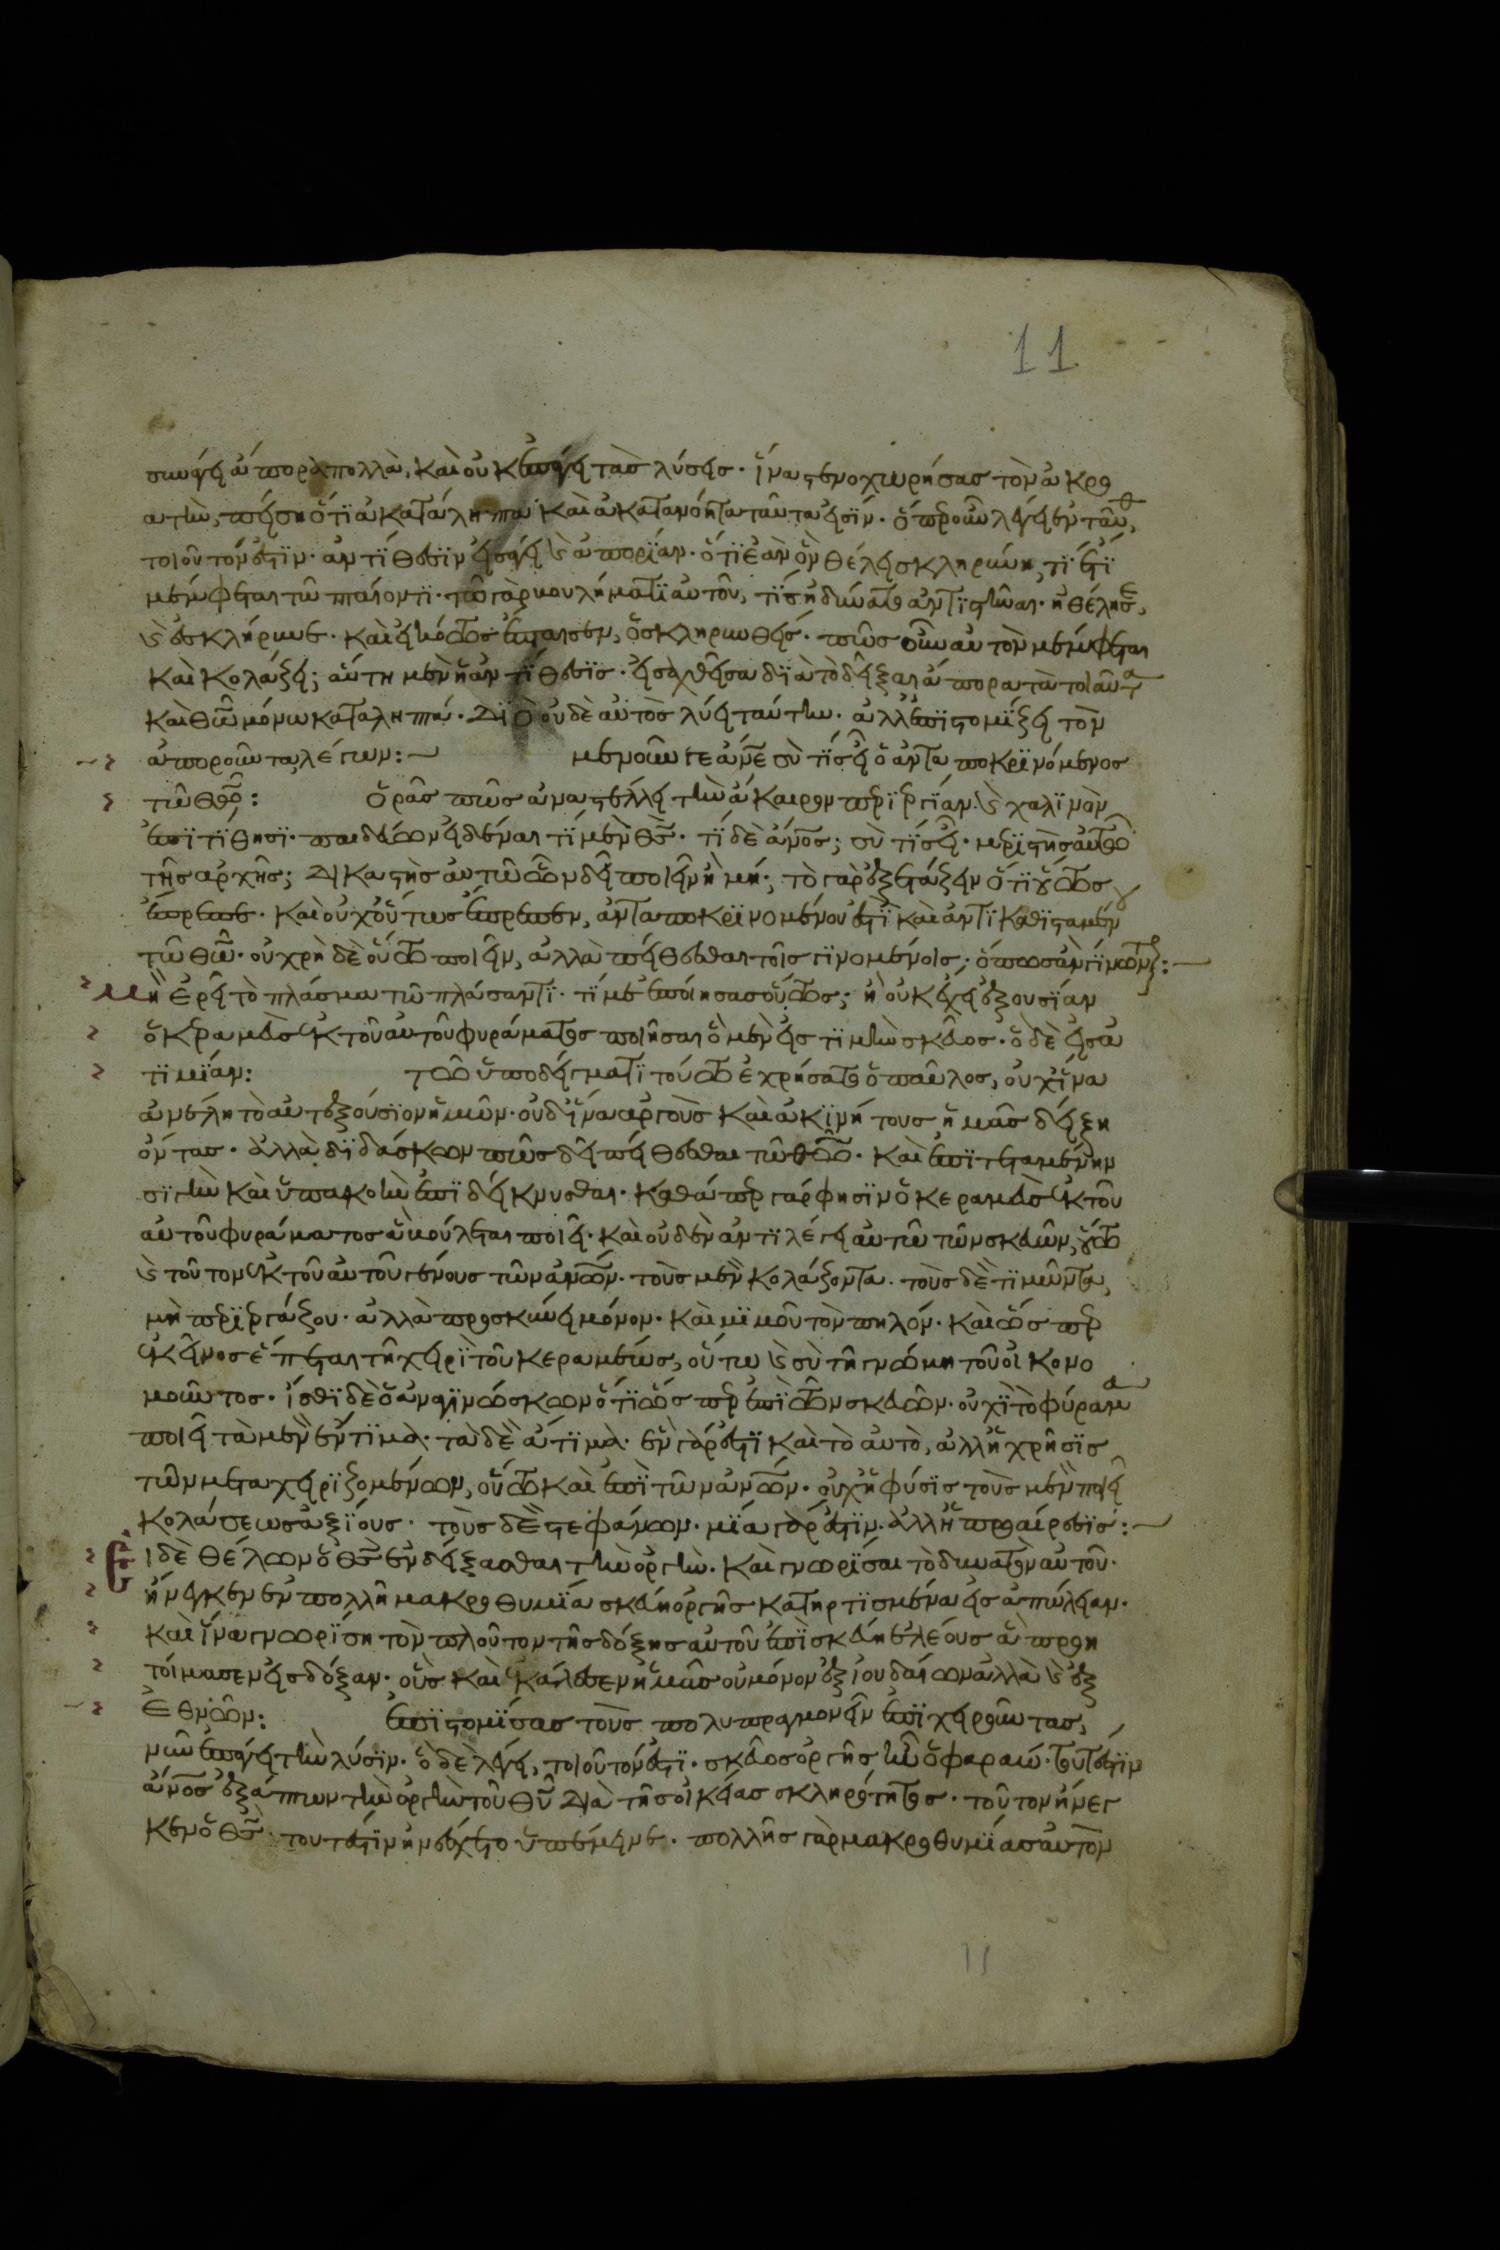 11
συνάγει ἄπορα πολλὰ, καὶ οὐκ ἐπάγει τὰς λύσεις· ἵνα στενοχωρήσας τὸν ἀκρο
ατὴν, πείσῃ ὅτι ἀκατάληπτα καὶ ἀκατανόητα ταῦτα εἰσίν· ὅπερ οὖν λέγει ἐνταῦθ,
τοιοῦτόν ἐστιν· ἀντίθεσιν εἰσάγει κ ἀπορίαν· ὅτι ἐὰν ὃν θέλει σκληρύνῃ, τί ἔτι
μέμφεται τῶ πταίοντι· τῶ γὰρ βουλήματι αὐτοῦ, τίς ἠδύνατο ἀντιστῆναι· ἠθέλησε,
κ ἐσκλήρυνε· καὶ εἰκότως ἔπταισεν, ὁ σκληρυνθείς· πῶς οὖν αὐτὸν μέμφεται
καὶ κολάζει; αὕτη μὲν ἡ ἀντίθεσις· εἰσαχθεῖσα διὰ τὸ δεῖξαι ἄπορα τὰ τοιαῦτα
καὶ θῶ μόνω καταληπτά· Διὸ οὐδὲ αὐτὸς λύει ταύτην· ἀλλ ἐπιστομίζει τὸν
ἀποροῦντα λέγων: μενοῦνγε ἄνε σὺ τίς εἶ ὁ ἀνταποκρινόμενος
τῶ θῶ: ὁρᾶς πῶς ἀναστέλλει τὴν ἄκαιρον περιεργίαν. κ χαλινὸν
ἐπιτίθησι· παιδεύων εἰδέναι τί μὲν θς· τί δὲ ἄνος; σὺ τίς εἶ· μεριστὴς αὐτῶ
τῆς ἀρχῆς; Δικαστὴς αὐτῶ ὧν δεῖ ποιεῖν ἢ μή; τὸ γὰρ ἐξετάζειν ὅτι οὕτως
ἔπρεπε· καὶ οὐχ οὕτως ἔπρεπεν, ἀνταποκρινομένου ἐστὶ καὶ ἀντικαθισταμένου
τῶ θῶ· οὐ χρὴ δὲ οὕτω ποιεῖν, ἀλλὰ πείθεσθαι τοῖς γινομένοις· ὅπως ἂν γίνωνται:
μὴ ἐρεῖ τὸ πλάσμα τῶ πλάσαντι· τί με ἐποίησας οὕτως; ἢ οὐκ ἔχει ἐξουσίαν
ὁ κεραμεὺς ἐκ τοῦ αὐτοῦ φυράματος ποιῆσαι ὃ μὲν εἰς τιμὴν σκεῦος· ὃ δὲ εἰς ἀ
τιμίαν: τῶ ὑποδείγματι τούτω ἐχρήσατο ὁ παῦλος, οὐχ ἵνα
ἀνέλη τὸ αὐτεξούσιον ἡμῶν· οὐδ ἵνα ἀργοὺς καὶ ἀκινήτους ἡμᾶς δείξη
ὄντας· ἀλλὰ διδάσκων πῶς δεῖ πείθεσθαι τῶ θῶ· καὶ ἐπιτεταμένην
σιγὴν καὶ ὑπακοὴν ἐπιδείκνυσθαι· καθάπερ γάρ φησιν ὁ κεραμεὺς ἐκ τοῦ
αὐτοῦ φυράματος ἃ βούλεται ποιεῖ· καὶ οὐδὲν ἀντιλέγει αὐτῶ τῶν σκευῶν, οὕτω
κ τοῦτον ἐκ τοῦ αὐτοῦ γένους τῶν ἀνων· τοὺς μὲν κολάζοντα. τοὺς δὲ τιμῶντα,
μὴ περιεργάζου· ἀλλὰ προσκύνει μόνον· καὶ μιμοῦ τὸν πηλόν· καὶ ὥσπερ
ἐκεῖνος ἕπεται τῆ χειρὶ τοῦ κεραμέως, οὕτω κ σὺ τῆ γνώμη τοῦ οἰκονο
μοῦντος· ἴσθι δὲ ὁ ἀναγινώσκων ὅτι ὥσπερ ἐπὶ τῶν σκευῶν· οὐχὶ τὸ φύραμα
ποιεῖ τὰ μὲν ἔντιμα· τὰ δὲ ἄτιμα· ἓν γάρ ἐστι καὶ τὸ αὐτὸ, ἀλλ ἡ χρῆσις
τῶν μεταχειριζομένων, οὕτω καὶ ἐπὶ τῶν ἀνων· οὐχ ἡ φύσις τοὺς μὲν ποιεῖ
κολάσεως ἀξίους· τοὺς δὲ στεφάνων· μία γάρ ἐστιν· ἀλλ ἡ προαίρεσις:
Εἰ δὲ θέλων ὁ θς ἐνδείξασθαι τὴν ὀργὴν. καὶ γνωρίσαι τὸ δυνατὸν αὐτοῦ·
ἤνεγκεν ἐν πολλῆ μακροθυμία σκεύη ὀργῆς κατηρτισμένα εἰς ἀπώλειαν·
καὶ ἵνα γνωρίση τὸν πλοῦτον τῆς δόξης αὐτοῦ ἐπὶ σκεύη ἐλέους ἃ προη
τοίμασεν εἰς δόξαν· οὓς καὶ ἐκάλεσεν ἡμᾶς οὐ μόνον ἐξ ἰουδαίων ἀλλὰ κ ἐξ
ἐθνῶν: ἐπιστομίσας τοὺς πολυπραγμονεῖν ἐπιχειροῦντας,
νῦν ἐπάγει τὴν λύσιν· ὃ δὲ λέγει, τοιοῦτόν ἐστι· σκεῦος ὀργῆς ἦν ὁ φαραώ· τουτέστιν
ἄνος ἐξάπτων τὴν ὀργὴν τοῦ θυ Διὰ τῆς οἰκείας σκληρότητος· τοῦτον ἤνεγ
κεν ὁ θς· τουτέστιν ἠνέσχετο ὑπέμεινε· πολλῆς γὰρ μακροθυμίας αὐτὸν
11